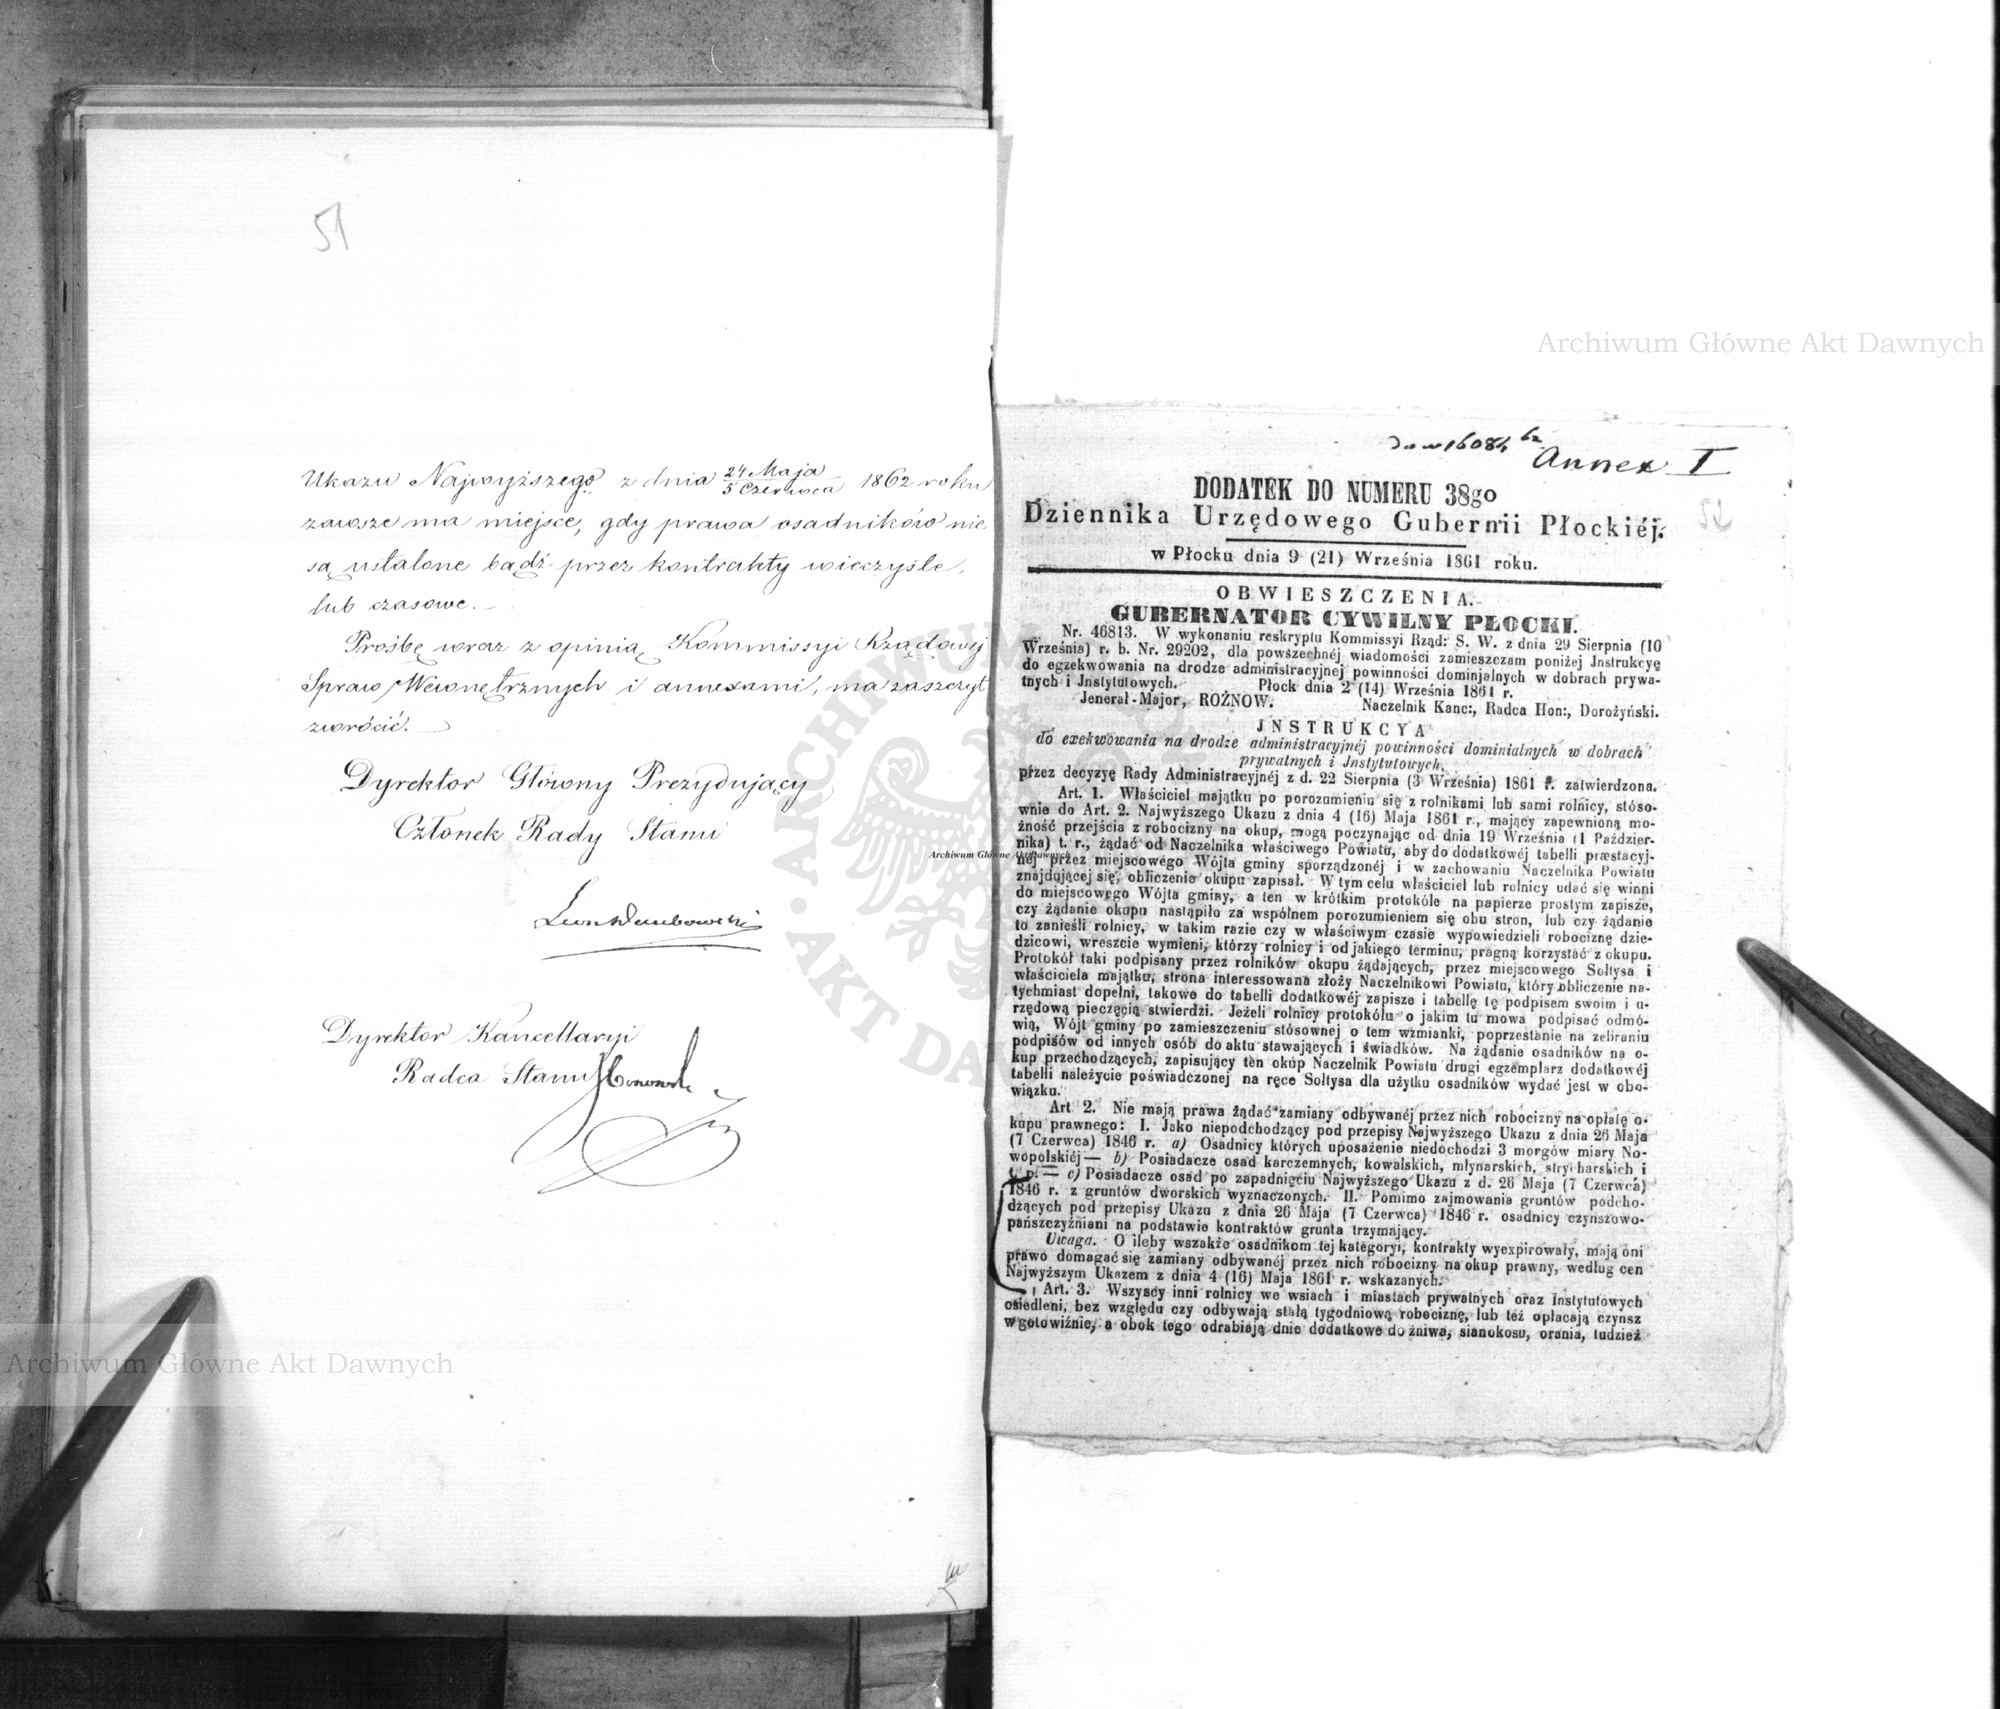 51
Ukazu Najwyższego z dnia 24 Maja / 5 Czerwca 1862 roku
zawsze ma miejsce, gdy prawa osadników nie
są ustalone bądź przez kontrakty wieczyste,
lub czasowe. –
Prośbę wraz z opinią Kommissyi Rządowej
Spraw Wewnętrznych i annexami, ma zaszczyt
zwrócić. –
Dyrektor Główny Prezydujący
Członek Rady Stanu
Dyrektor Kancellaryi
Radca Stanu
Archiwum Główne Akt Dawnych
Archiwum Główne Akt Dawnych
Archiwum Główne Akt Dawnych
ARCHIWUM
AKT DA
16084 62
Annex I
52
DODATEK DO NUMERU 38go
Dziennika Urzędowego Gubernii Płockiéj.
w Płocku dnia 9 (21) Września 1861 roku.
OBWIESZCZENIA.
GUBERNATOR CYWILNY PŁOCKI.
Nr. 46813. W wykonaniu reskryptu Kommissyi Rząd: S. W. z dnia 29 Sierpnia (10
Września) r. b. Nr. 29202, dla powszechnéj wiadomości zamieszczam poniżej Jnstrukcyę
do egzekwowania na drodze administracyjnéj powinności dominjalnych w dobrach prywa-
tnych i Jnstytutowych. Płock dnia 2 (14) Września 1861 r.
Jenerał-Major, ROŻNOW. Naczelnik Kanc:, Radca Hon:, Dorożyński.
JNSTRUKCYA
do exekwowania na drodze administracyjnéj powinności dominialnych w dobrach
prywatnych i Jnstytutowych,
przez decyzyę Rady Administracyjnéj z d. 22 Sierpnia (3 Września) 1861 r. zatwierdzona.
Art. 1. Właściciel majątku po porozumieniu się z rolnikami lub sami rolnicy, stóso-
wnie do Art. 2. Najwyższego Ukazu z dnia 4 (16) Maja 1861 r., mający zapewnioną mo-
żność przejścia z robocizny na okup, mogą poczynając od dnia 19 Września (1 Paździer-
nika) t. r., żądać od Naczelnika właściwego Powiatu, aby do dodatkowéj tabelli præstacyj-
néj przez miejscowego Wójta gminy sporządzonéj i w zachowaniu Naczelnika Powiatu
znajdującej się, obliczenie okupu zapisał. W tym celu właściciel lub rolnicy udać się winni
do miejscowego Wójta gminy, a ten w krótkim protokóle na papierze prostym zapisze,
czy żądanie okupu nastąpiło za wspólnem porozumieniem się obu stron, lub czy żądanie
to zanieśli rolnicy, w takim razie czy w właściwym czasie wypowiedzieli robociznę dzie-
dzicowi, wreszcie wymieni, którzy rolnicy i od jakiego terminu, pragną korzystać z okupu.
Protokół taki podpisany przez rolników okupu żądających, przez miejscowego Sołtysa i
właściciela majątku, strona interessowana złoży Naczelnikowi Powiatu, który obliczenie na-
tychmiast dopełni, takowe do tabelli dodatkowéj zapisze i tabellę tę podpisem swoim i u-
rzędową pieczęcią stwierdzi. Jeżeli rolnicy protokółu o jakim tu mowa podpisać odmó-
wią, Wójt gminy po zamieszczeniu stósownej o tem wzmianki, poprzestanie na zebraniu
podpisów od innych osób do aktu stawających i świadków. Na żądanie osadników na o-
kup przechodzących, zapisujący ten okup Naczelnik Powiatu drugi egzemplarz dodatkowéj
tabelli należycie poświadczonej na ręce Sołtysa dla użytku osadników wydać jest w obo-
wiązku.
Art. 2. Nie mają prawa żądać zamiany odbywanéj przez nich robocizny na opłatę o-
kupu prawnego: I. Jako niepodchodzący pod przepisy Najwyższego Ukazu z dnia 26 Maja
(7 Czerwca) 1846 r. a) Osadnicy których uposażenie niedochodzi 3 morgów miary No-
wopolskiéj— b) Posiadacze osad karczemnych, kowalskich, młynarskich, strycharskich i
t. p.— c) Posiadacze osad po zapadnięciu Najwyższego Ukazu z d. 26 Maja (7 Czerwca)
1846 r. z gruntów dworskich wyznaczonych. II. Pomimo zajmowania gruntów podcho-
dzących pod przepisy Ukazu z dnia 26 Maja (7 Czerwca) 1846 r. osadnicy czynszowo-
pańszczyźniani na podstawie kontraktów grunta trzymający.
Uwaga. O ileby wszakże osadnikom tej kategoryi, kontrakty wyexpirowały, mają oni
prawo domagać się zamiany odbywanéj przez nich robocizny na okup prawny, według cen
Najwyższym Ukazem z dnia 4 (16) Maja 1861 r. wskazanych.
Art. 3. Wszyscy inni rolnicy we wsiach i miastach prywatnych oraz Instytutowych
osiedleni, bez względu czy odbywają stałą tygodniową robociznę, lub też opłacają czynsz
w gotowiźnie, a obok tego odrabiają dnie dodatkowe do żniwa, sianokosu, orania, tudzież